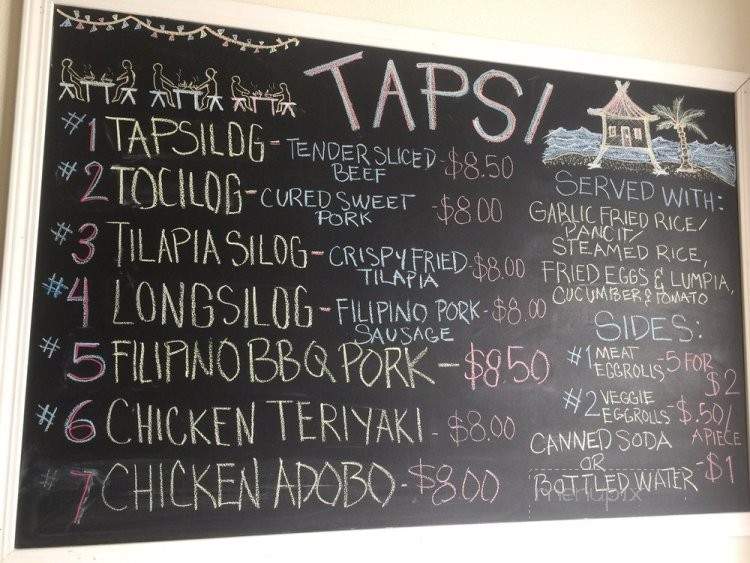 TAPSI
#1 TAPSILOG - TENDER SLICED BEEF - $8.50
#2 TOCILOG - CURED SWEET PORK - $8.00
#3 TILAPIA SILOG - CRISPY FRIED TILAPIA - $8.00
#4 LONGSILOG - FILIPINO PORK SAUSAGE - $8.00
#5 FILIPINO BBQ PORK - $8.50
#6 CHICKEN TERIYAKI - $8.00
#7 CHICKEN ADOBO - $8.00
SERVED WITH:
GARLIC FRIED RICE/
PANCIT/
STEAMED RICE,
FRIED EGGS & LUMPIA,
CUCUMBER & TOMATO
SIDES:
#1 MEAT EGGROLLS - 5 FOR $2
#2 VEGGIE EGGROLLS - $.50/ APIECE
CANNED SODA
OR
BOTTLED WATER - $1
menupix